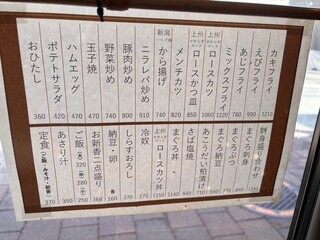 カキフライ 1210
えびフライ 990
あじフライ 930
ミックスフライ
上州 ロースカツ 1060
上州 ロースかつ皿 850
メンチカツ 820
新潟 から揚げ 740
ニラレバ炒め 910
豚肉炒め 800
野菜炒め 740
玉子焼 470
ハムエッグ 470
ポテトサラダ 420
おひたし 360
刺身盛り合わせ
まぐろ刺身
まぐろぶつ
まぐろ納豆
あこうだい粕漬け
さば塩焼
まぐろ丼
上州 ロースカツ丼 1150
冷奴
しらすおろし
納豆・卵 各160
お新香二点盛り 350
ご飯
あさり汁 250
定食(ご飯・みそ汁・新香) 370